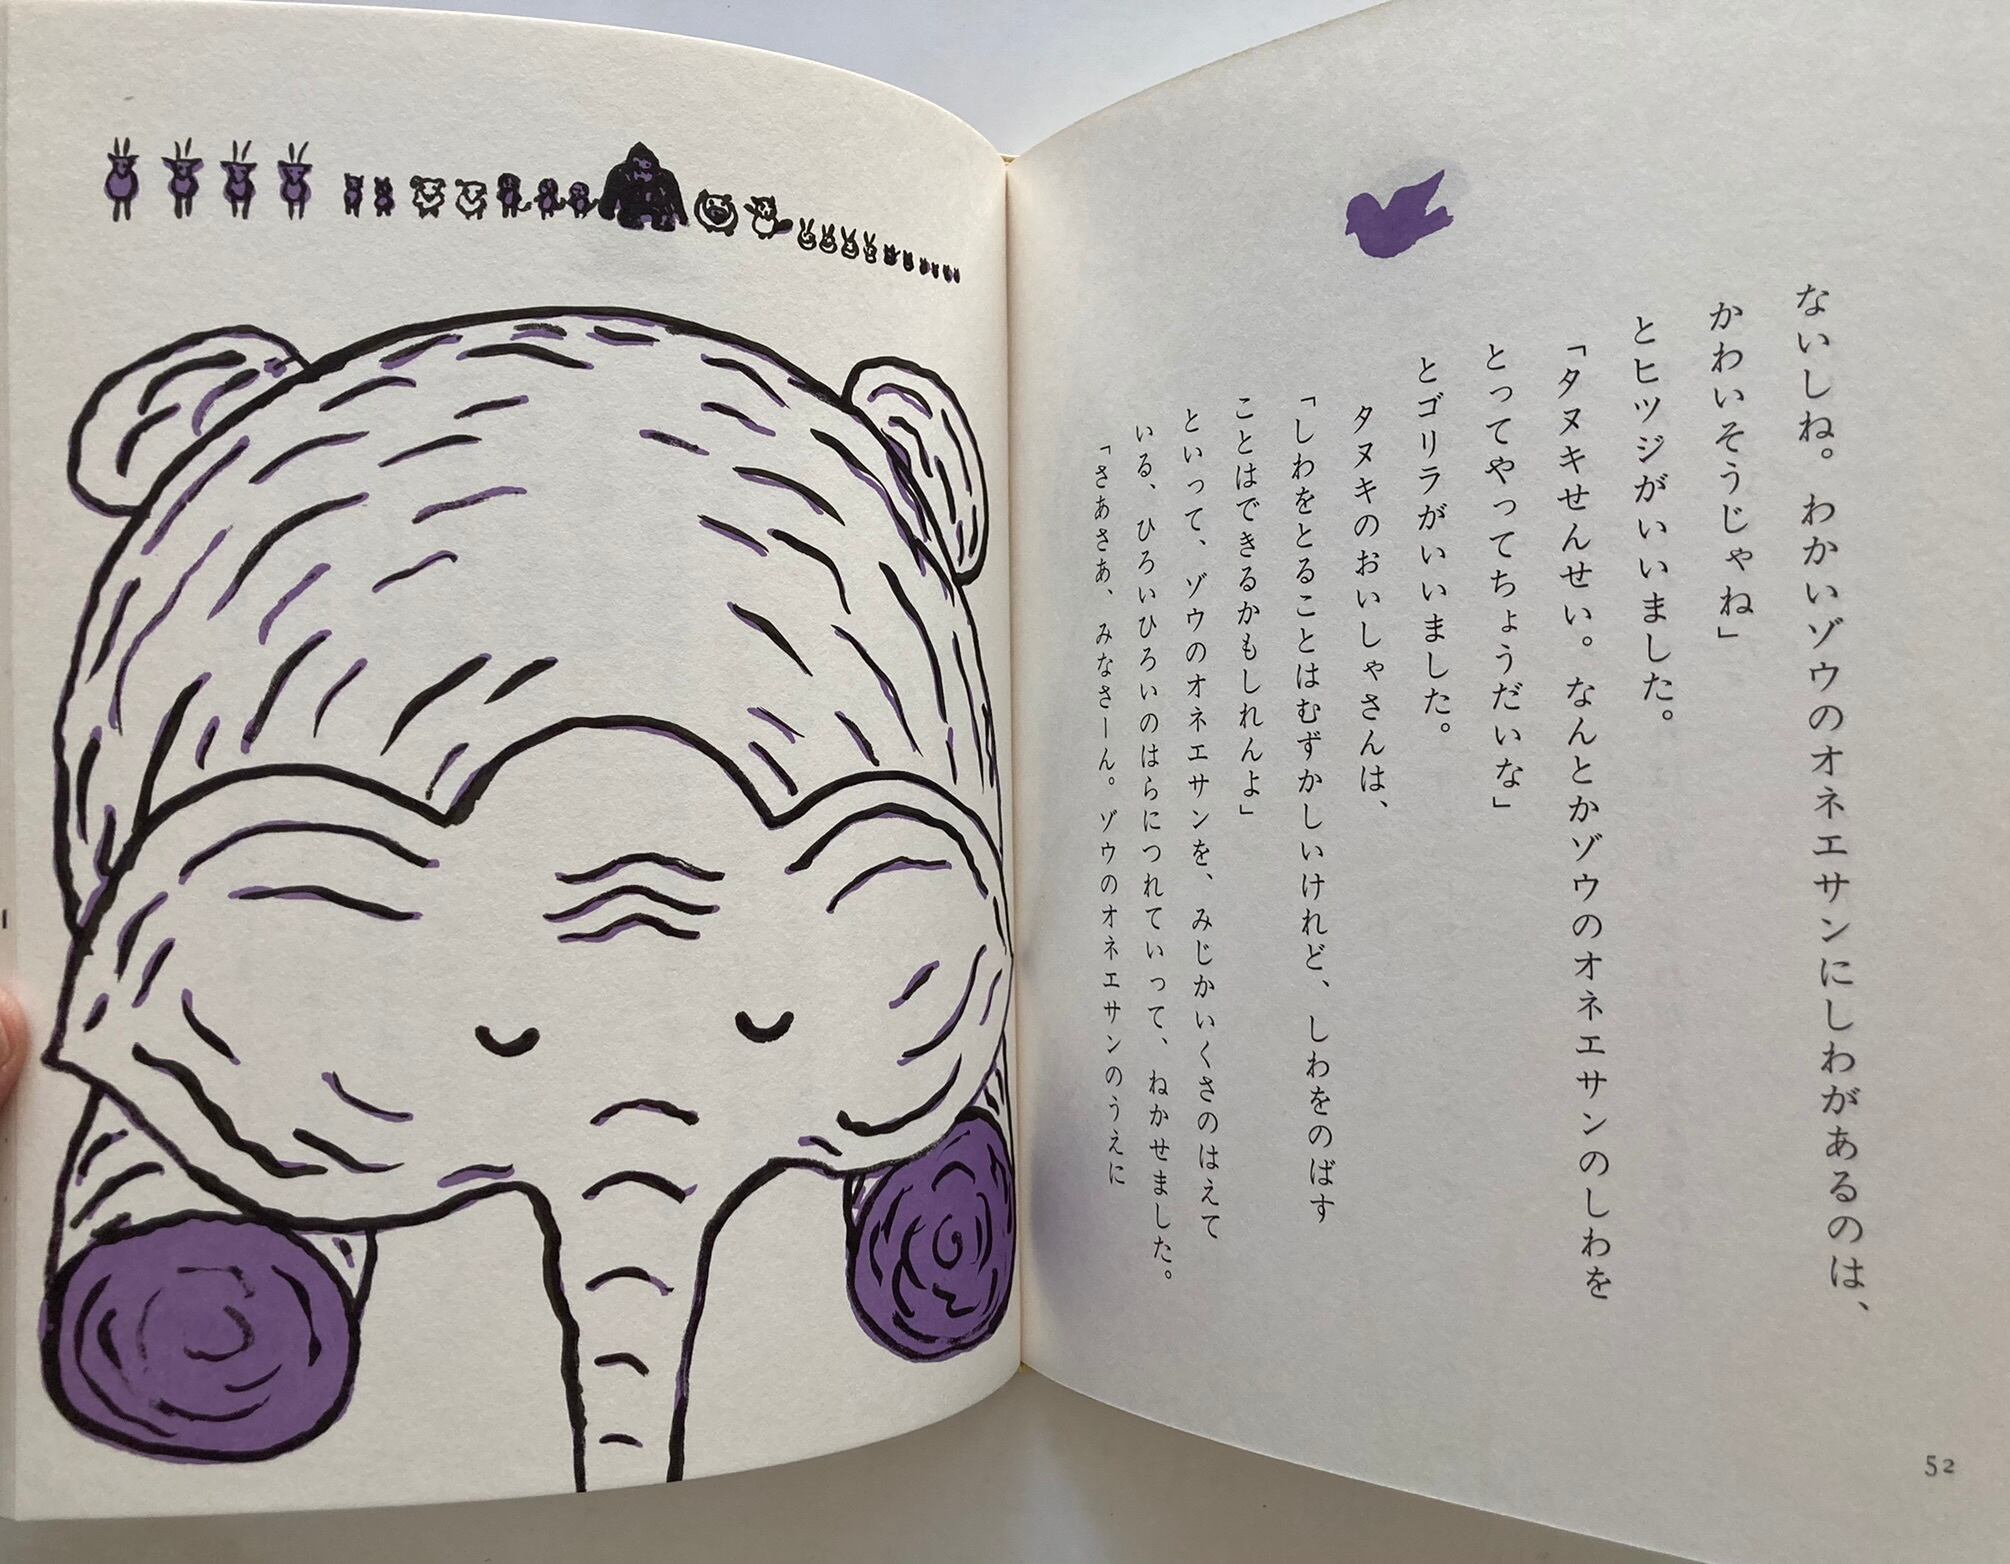 ないしね。わかいゾウのオネエサンにしわがあるのは、
かわいそうじゃね」
とヒツジがいいました。
「タヌキせんせい。なんとかゾウのオネエサンのしわを
とってやってちょうだいな」
とゴリラがいいました。
タヌキのおいしゃさんは、
「しわをとることはむずかしいけれど、しわをのばす
ことはできるかもしれんよ」
といって、ゾウのオネエサンを、みじかいくさのはえて
いる、ひろいひろいのはらにつれていって、ねかせました。
「さあさあ、みなさーん。ゾウのオネエサンのうえに
52